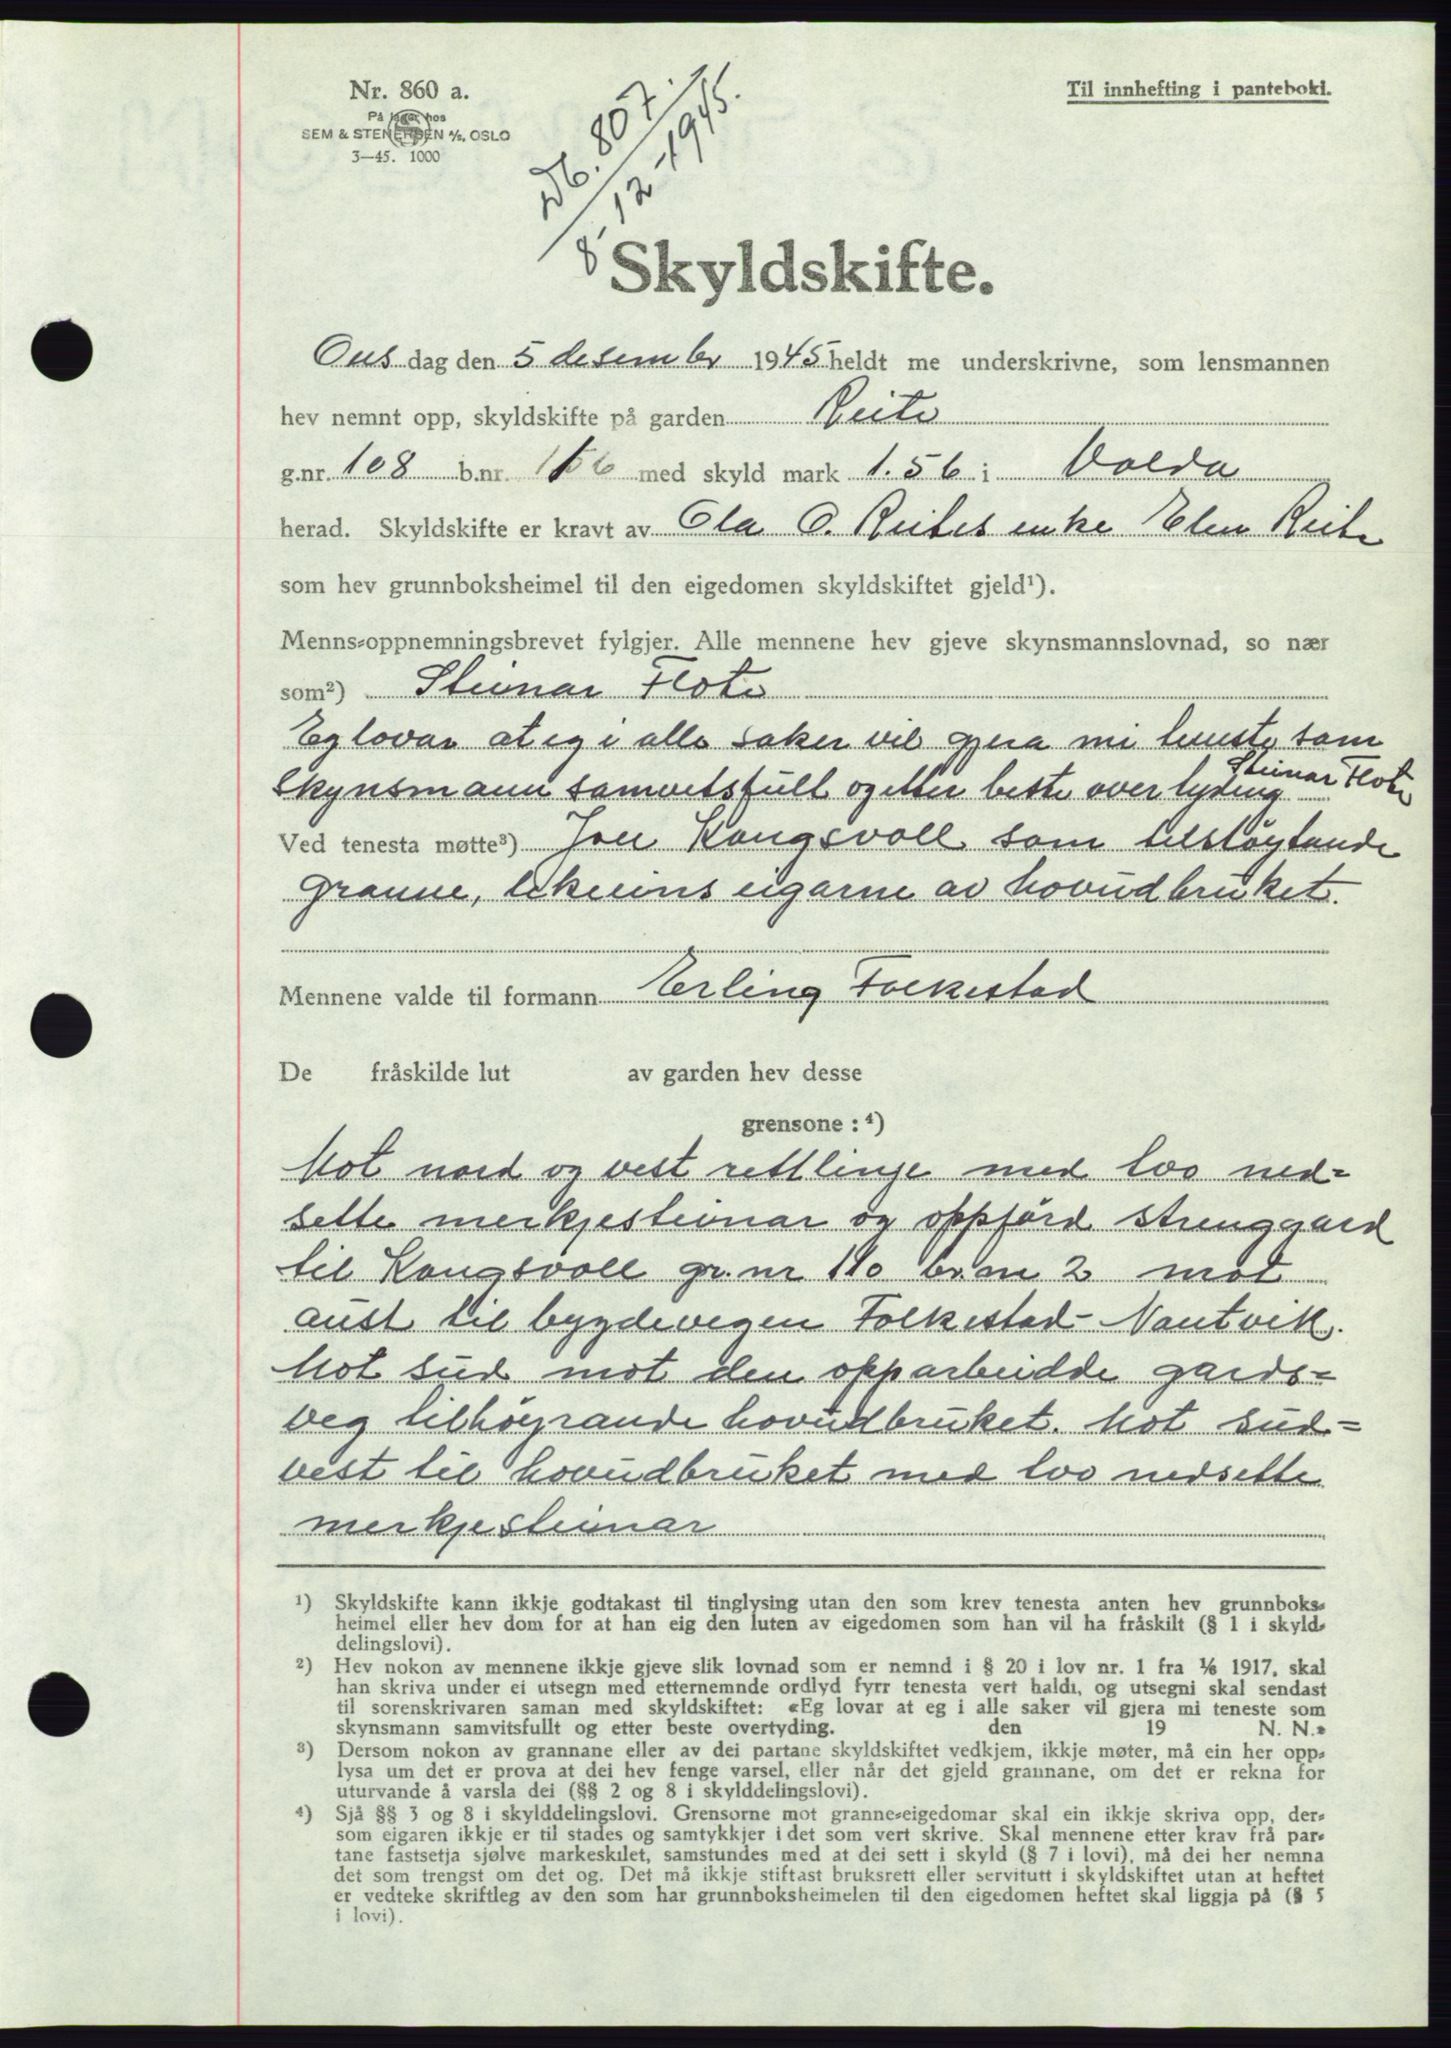 Nr. 860 a.
På lager hos
SEM & STENERSEN A/S, OSLO
3—45. 1000
Til innhefting i panteboki.
Db. 807
8-12-1945.
Skyldskifte.
Ons dag den 5 desember 1945 heldt me underskrivne, som lensmannen
hev nemnt opp, skyldskifte på garden Reite
g.nr. 108 b.nr. 6 med skyld mark 1.56 i Volda
herad. Skyldskifte er kravt av Ola O. Reites enke Elen Reite
som hev grunnboksheimel til den eigedomen skyldskiftet gjeld¹).
Menns-oppnemningsbrevet fylgjer. Alle mennene hev gjeve skynsmannslovnad, so nær
som²) Steinar Flote
Eg lovar at eg i alle saker vil gjera mi teneste som
skynsmann samvitsfullt og etter beste overtyding Steinar Flote
Ved tenesta møtte³) Jon Kongsvoll som tilstøytande
granne, likeeins eigarne av hovudbruket.
Mennene valde til formann Erling Folkestad
De fråskilde lut av garden hev desse
grensone: ⁴)
Mot nord og vest rettlinje med tvo ned=
sette merkjesteinar og oppførd strenggard
til Kongsvoll gr.nr 110 br.nr 2 mot
aust til bygdevegen Folkestad - Nautvik.
Mot sud mot den opparbeidde gards=
veg tilhøyrande hovudbruket. Mot sud=
vest til hovudbruket med tvo nedsette
merkjesteinar
¹) Skyldskifte kann ikkje godtakast til tinglysing utan den som krev tenesta anten hev grunnboks-
heimel eller hev dom for at han eig den luten av eigedomen som han vil ha fråskilt (§ 1 i skyld-
delingslovi).
²) Hev nokon av mennene ikkje gjeve slik lovnad som er nemnd i § 20 i lov nr. 1 fra 1/6 1917, skal
han skriva under ei utsegn med etternemnde ordlyd fyrr tenesta vert haldi, og utsegni skal sendast
til sorenskrivaren saman med skyldskiftet: «Eg lovar at eg i alle saker vil gjera mi teneste som
skynsmann samvitsfullt og etter beste overtyding. den 19 N. N.»
³) Dersom nokon av grannane eller av dei partane skyldskiftet vedkjem, ikkje møter, må ein her opp-
lysa um det er prova at dei hev fenge varsel, eller når det gjeld grannane, om det er rekna for
uturvande å varsla dei (§§ 2 og 8 i skylddelingslovi).
⁴) Sjå §§ 3 og 8 i skylddelingslovi. Grensorne mot granne-eigedomar skal ein ikkje skriva opp, der-
som eigaren ikkje er til stades og samtykkjer i det som vert skrive. Skal mennene etter krav frå par-
tane fastsetja sjølve markeskilet, samstundes med at dei sett i skyld (§ 7 i lovi), må dei her nemna
det som trengst om det og. Det må ikkje stiftast bruksrett eller servitutt i skyldskiftet utan at heftet
er vedteke skriftleg av den som har grunnboksheimelen til den eigedomen heftet skal liggja på (§ 5
i lovi).